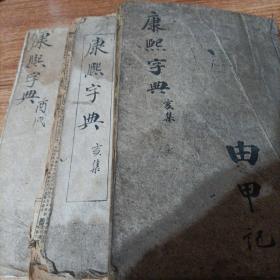 康熙字典
亥集
典甲记
康熙字典
亥集
康熙字典
酉戌